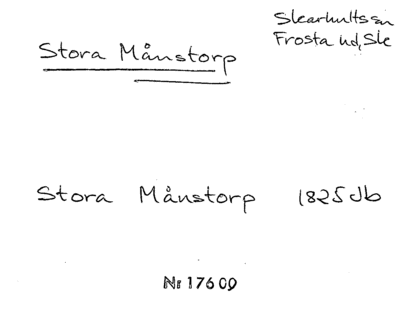 Skarhults sn
Frosta hd, Sk
Stora Månstorp
Stora Månstorp 1825 Jb
Nr 17609